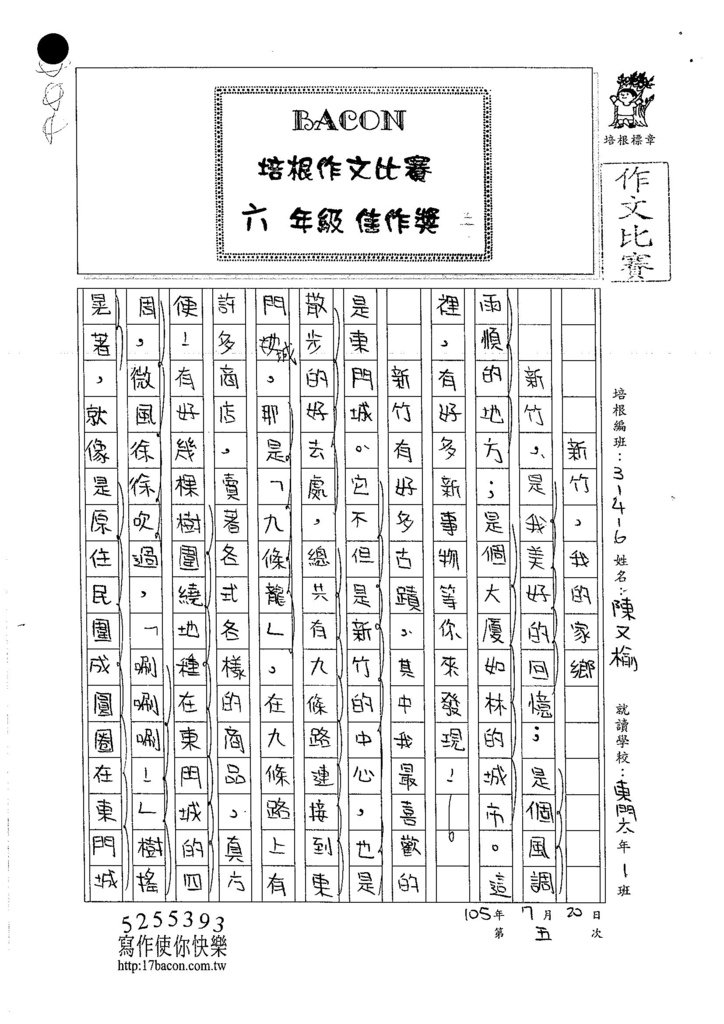 BACON
培根作文比賽
六 年級 佳作獎
培根標章
作文比賽
培根編班：3-4-6 姓名：陳又榆 就讀學校：東門六年1班
新竹，我的家鄉
新竹，是我美好的回憶；是個風調
雨順的地方；是個大廈如林的城市。這
裡，有好多新事物等你來發現！
新竹有好多古蹟，其中我最喜歡的
是東門城。它不但是新竹的中心，也是
散步的好去處，總共有九條路連接到東
門城，那是「九條龍」，在九條路上有
許多商店，賣著各式各樣的商品，真方
便！有好幾棵樹圍繞地種在東門城的四
周，微風徐徐吹過，「唰唰唰！」樹搖
晃著，就像是原住民圍成圓圈在東門城
105年 7月 20日
第 五 次
5255393
寫作使你快樂
http:17bacon.com.tw